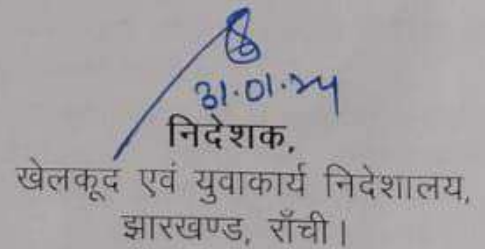 31.01.24
निदेशक,
खेलकूद एवं युवाकार्य निदेशालय,
झारखण्ड, राँची।